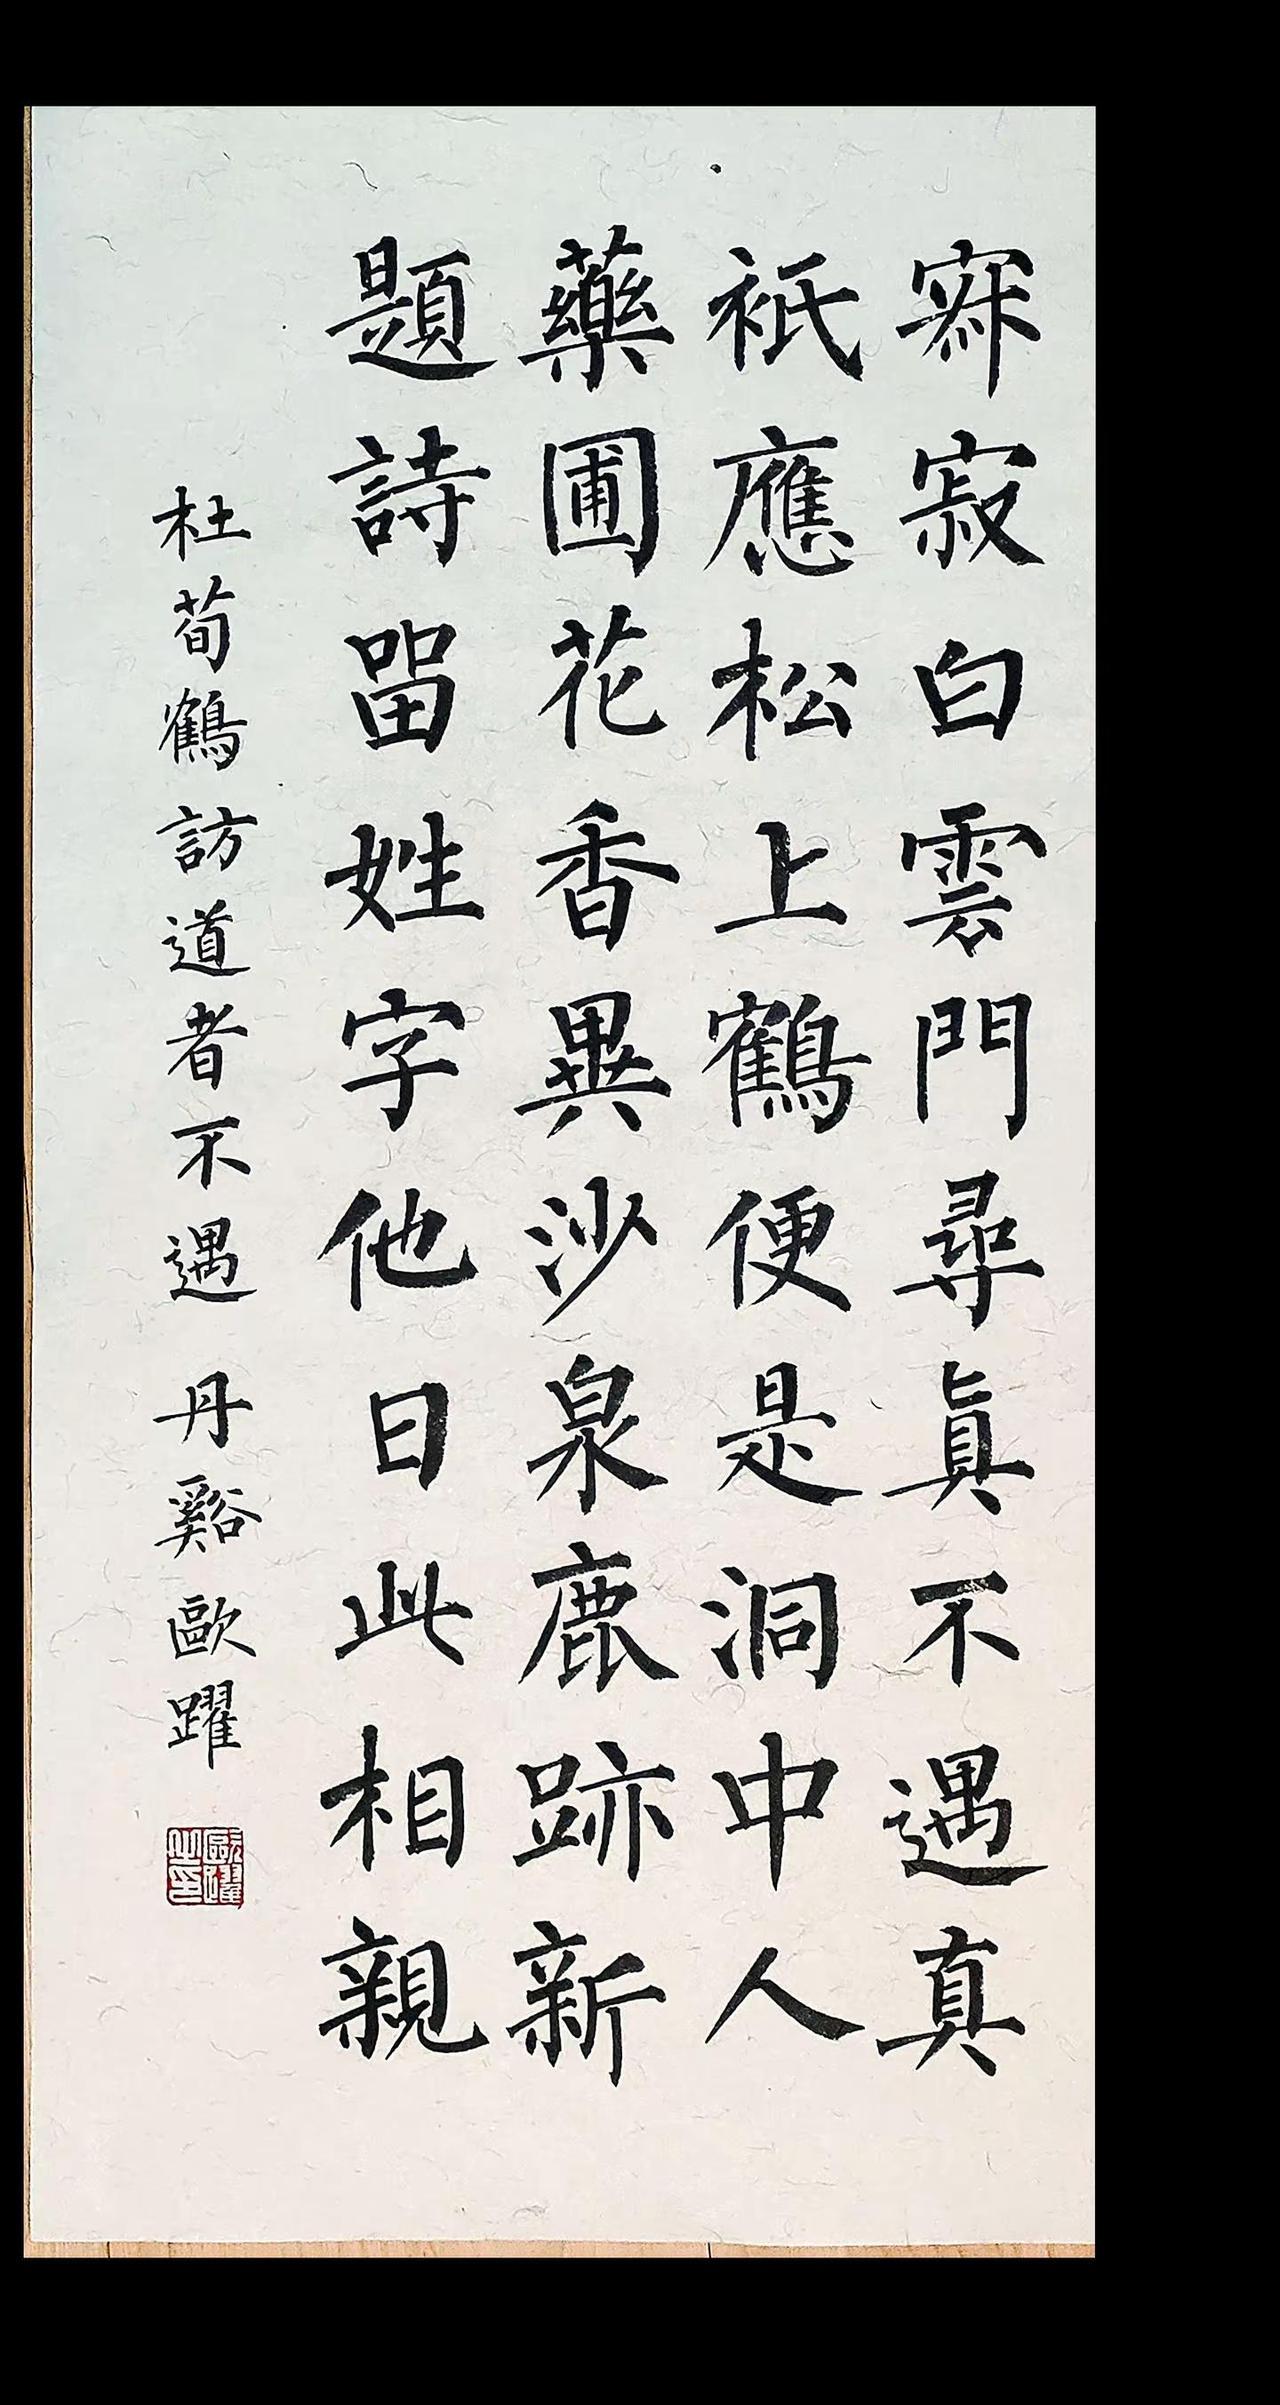 寂寂白雲門尋眞不遇真
祇應松上鶴便是洞中人
藥圃花香異沙泉鹿跡新
題詩留姓字他日此相親
杜荀鶴訪道者不遇 丹谿歐躍
歐躍之印